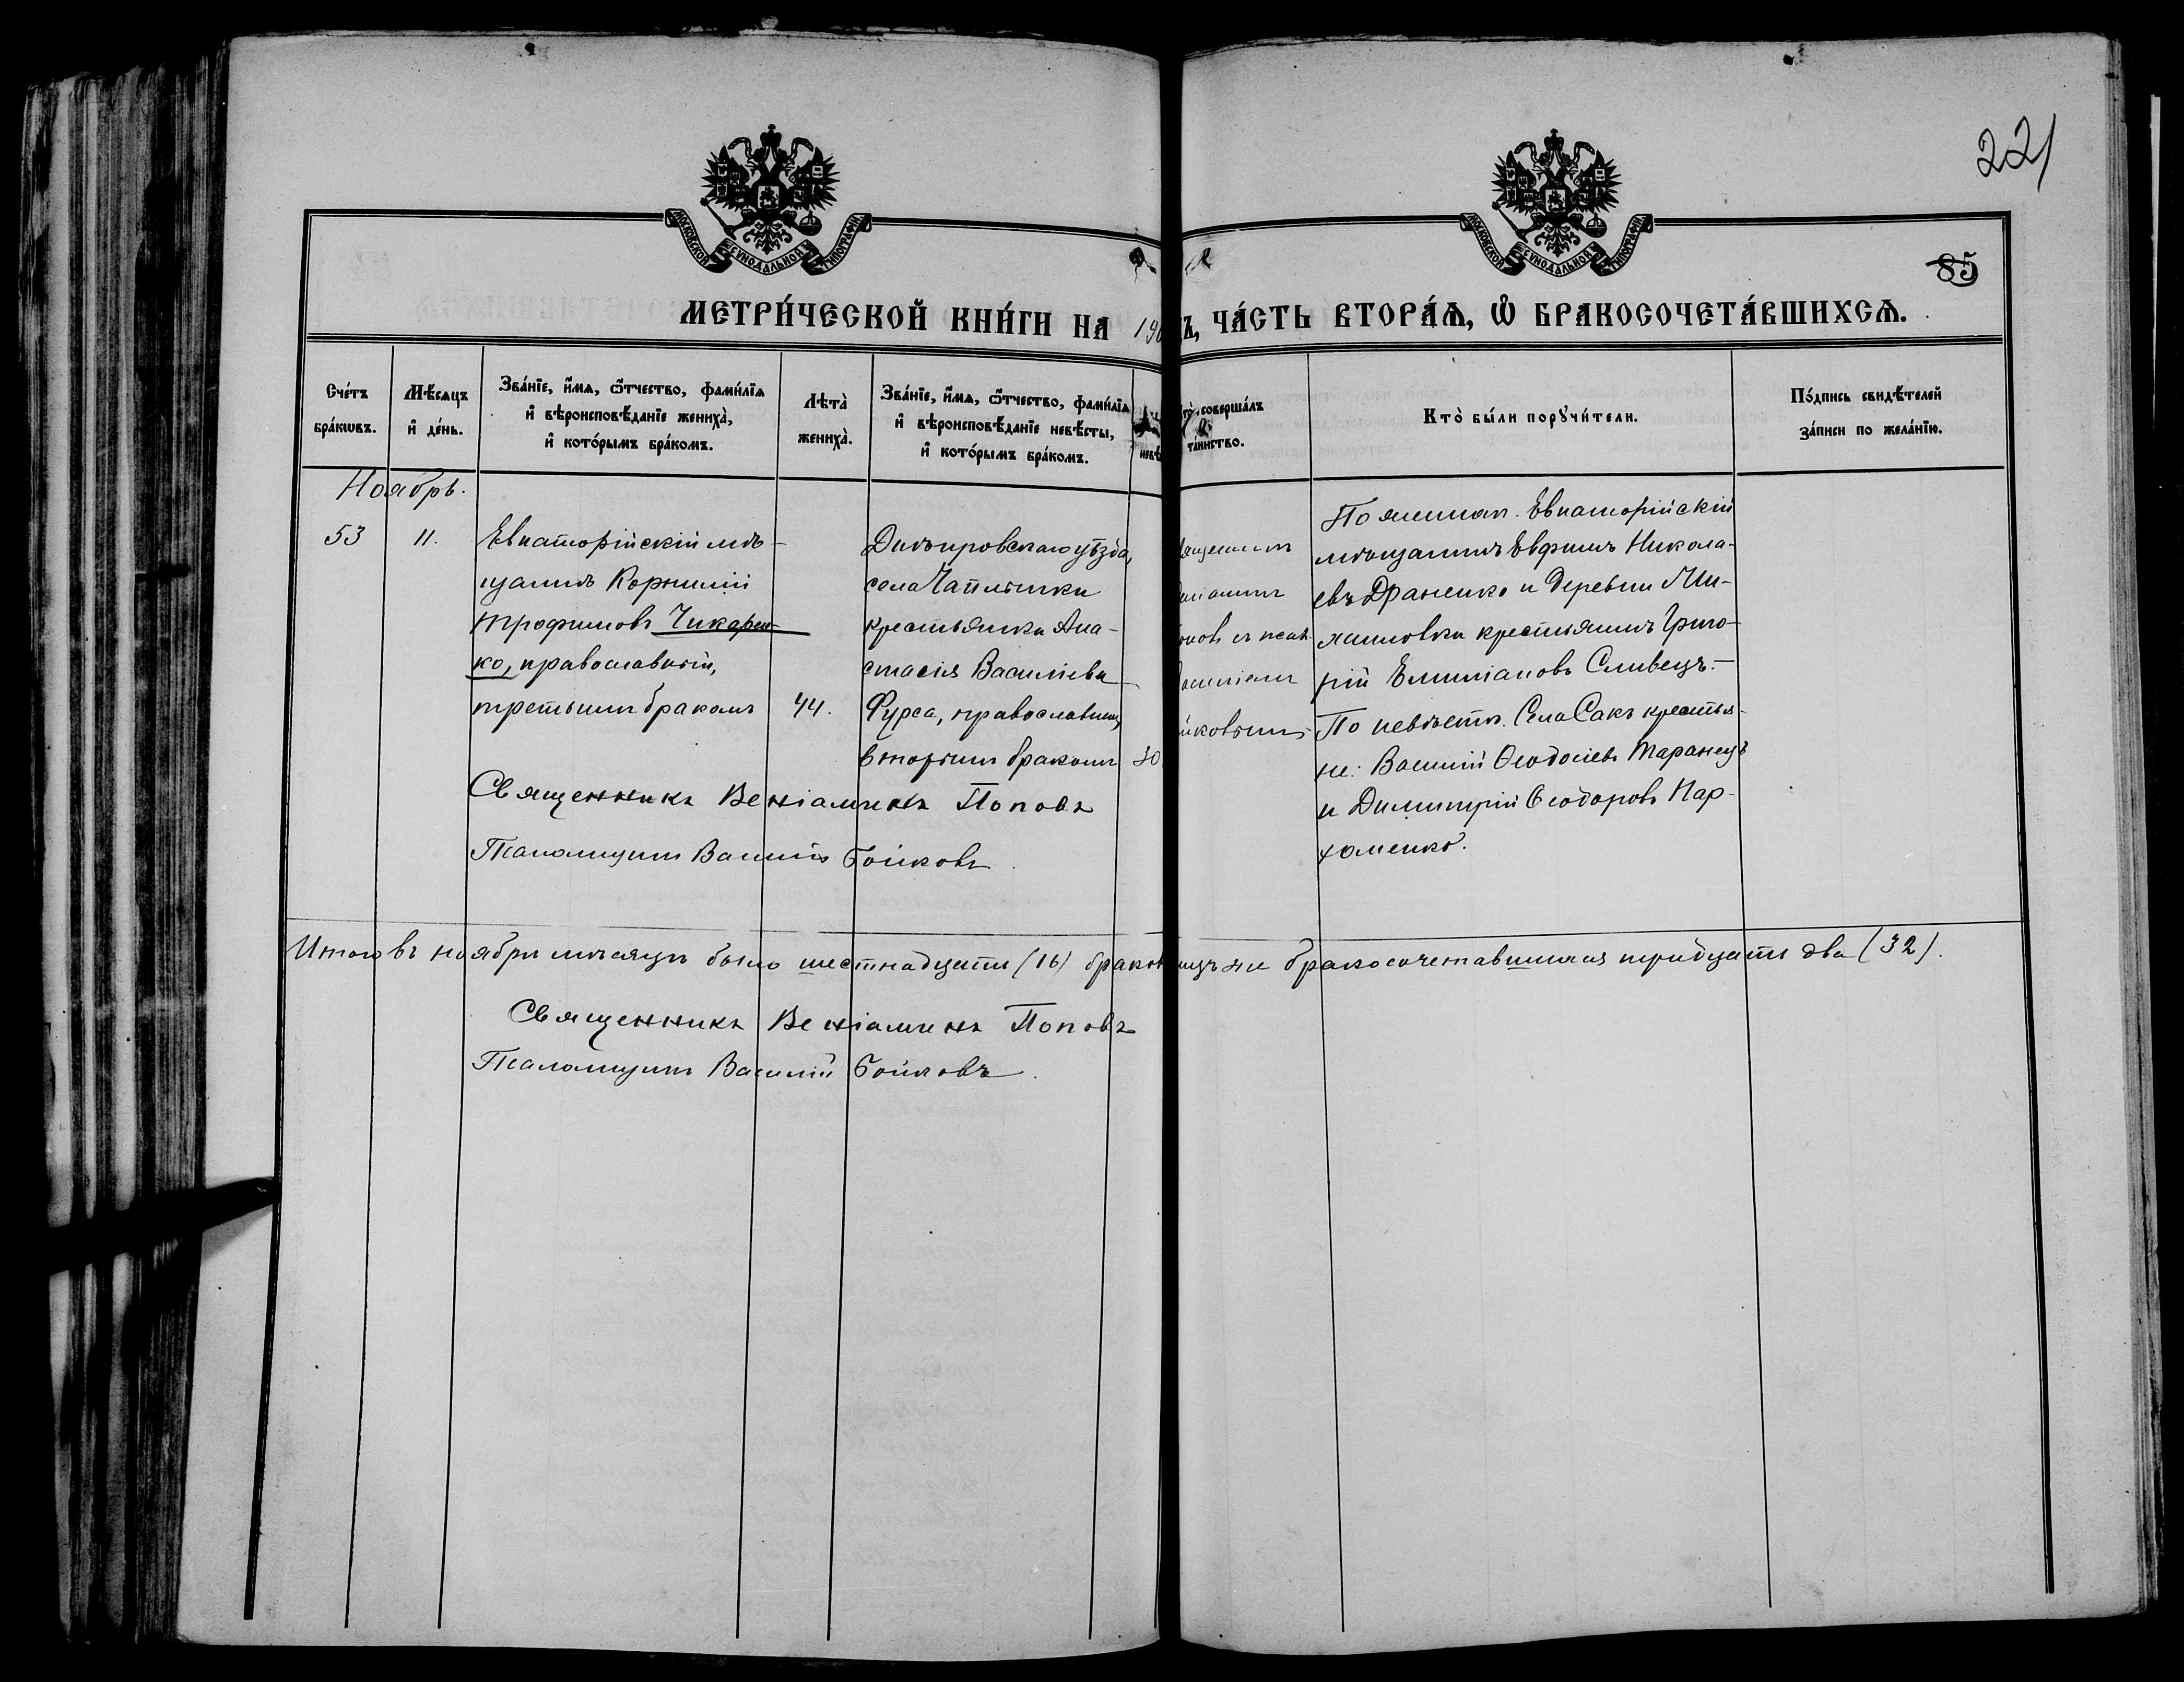 221
МОСКОВСКОЙ СѴНОДАЛЬНОЙ ТИПОГРАФІИ
МОСКОВСКОЙ СѴНОДАЛЬНОЙ ТИПОГРАФІИ
85
МЕТРИ́ЧЕСКОЙ КНИ́ГИ НА 190
Ъ, ЧА́СТЬ ВТОРА́Ѧ, Ѡ҆ БРАКОСОЧЕТА́ВШИХСѦ.
Сче́тъ бра́кѡвъ.
Мѣ́сѧцъ и҆ де́нь.
Зва́нїе, и҆́мѧ, ѻ҆́тчество, фамі́лїѧ и҆ вѣроисповѣ́данїе жениха̀, и҆ кото́рымъ бра́комъ.
Лѣта̀ жениха̀.
Зва́нїе, и҆́мѧ, ѻ҆́тчество, фамі́лїѧ и҆ вѣроисповѣ́данїе невѣ́сты, и҆ кото́рымъ бра́комъ.
невѣ
то̀ соверша́лъ та́инство.
Кто̀ бы́ли порꙋчи́тели.
По́дпись свидѣ́телей за́писи по жела́нїю.
Ноябрь.
53
11.
Евпаторійскій мѣ-
щанинъ Корнилій
Трофимовъ Чикарен-
ко, православный,
третьимъ бракомъ
44.
Днѣпровскаго уѣзда,
села Чаплынки
крестьянка Ана-
стасія Васильева
Фурса, православнаго,
вторымъ бракомъ
30
ященникъ
ніаминъ
повъ съ псал.
асиліемъ
йковымъ
По женихѣ. Евпаторійскій
мѣщанинъ Евфимъ Никола-
евъ Драненко и деревни Ми-
хайловки крестьянинъ Григо-
рій Емиліановъ Сливецъ.
По невѣстѣ. Села Сакъ крестья-
не: Василій Ѳеодосіевъ Таранецъ
и Димитрій Ѳеодоровъ Пар-
хоменко.
Священникъ Веніаминъ Поповъ
Псаломщикъ Василій Бойковъ
Итого въ ноябрѣ мѣсяцѣ было шестнадцать (16) браков
бракосочетавшихся тридцать два (32).
Священникъ Веніаминъ Поповъ
Псаломщикъ Василій Бойковъ.